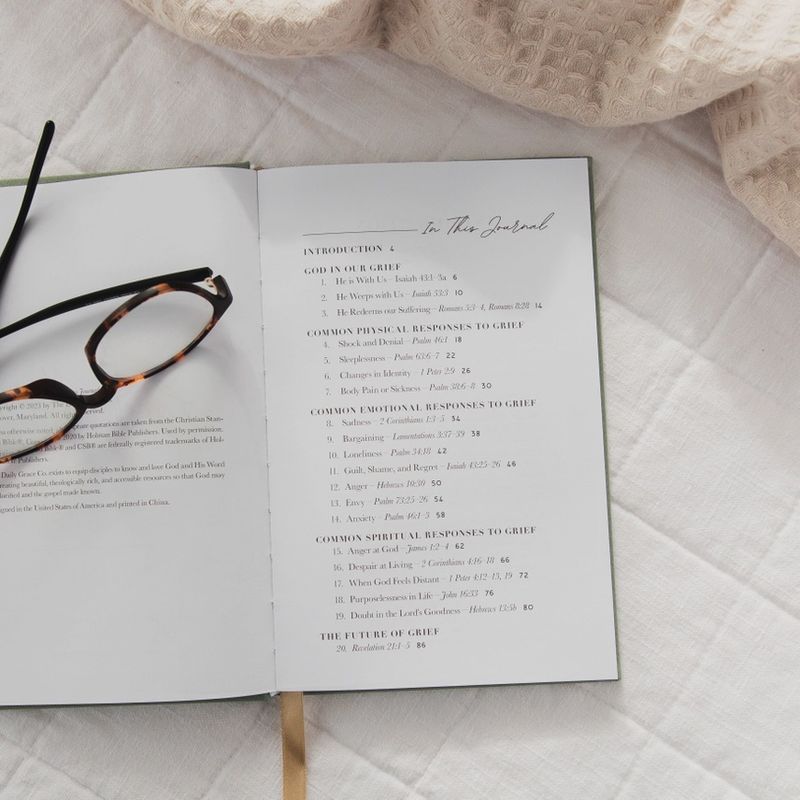 Journal
yright © 2023 by The
over, Maryland. All rights reserved.
s otherwise noted, quotations are taken from the Christian Stan-
Bible®, 2020 by Holman Bible Publishers. Used by permission.
Bible® and CSB® are federally registered trademarks of Hol-
Publishers.
Daily Grace Co. exists to equip disciples to know and love God and His Word
reating beautiful, theologically rich, and accessible resources so that God may
lorified and the gospel made known.
igned in the United States of America and printed in China.
In This Journal
INTRODUCTION 4
GOD IN OUR GRIEF
1. He is With Us – Isaiah 43:1–3a 6
2. He Weeps with Us – Isaiah 53:3 10
3. He Redeems our Suffering – Romans 5:3–4, Romans 8:28 14
COMMON PHYSICAL RESPONSES TO GRIEF
4. Shock and Denial – Psalm 46:1 18
5. Sleeplessness – Psalm 63:6–7 22
6. Changes in Identity – 1 Peter 2:9 26
7. Body Pain or Sickness – Psalm 38:6–8 30
COMMON EMOTIONAL RESPONSES TO GRIEF
8. Sadness – 2 Corinthians 1:3–5 34
9. Bargaining – Lamentations 3:37–39 38
10. Loneliness – Psalm 34:18 42
11. Guilt, Shame, and Regret – Isaiah 43:25–26 46
12. Anger – Hebrews 10:30 50
13. Envy – Psalm 73:25–26 54
14. Anxiety – Psalm 46:1–5 58
COMMON SPIRITUAL RESPONSES TO GRIEF
15. Anger at God – James 1:2–4 62
16. Despair at Living – 2 Corinthians 4:16–18 66
17. When God Feels Distant – 1 Peter 4:12–13, 19 72
18. Purposelessness in Life – John 16:33 76
19. Doubt in the Lord's Goodness – Hebrews 13:5b 80
THE FUTURE OF GRIEF
20. Revelation 21:1–5 86